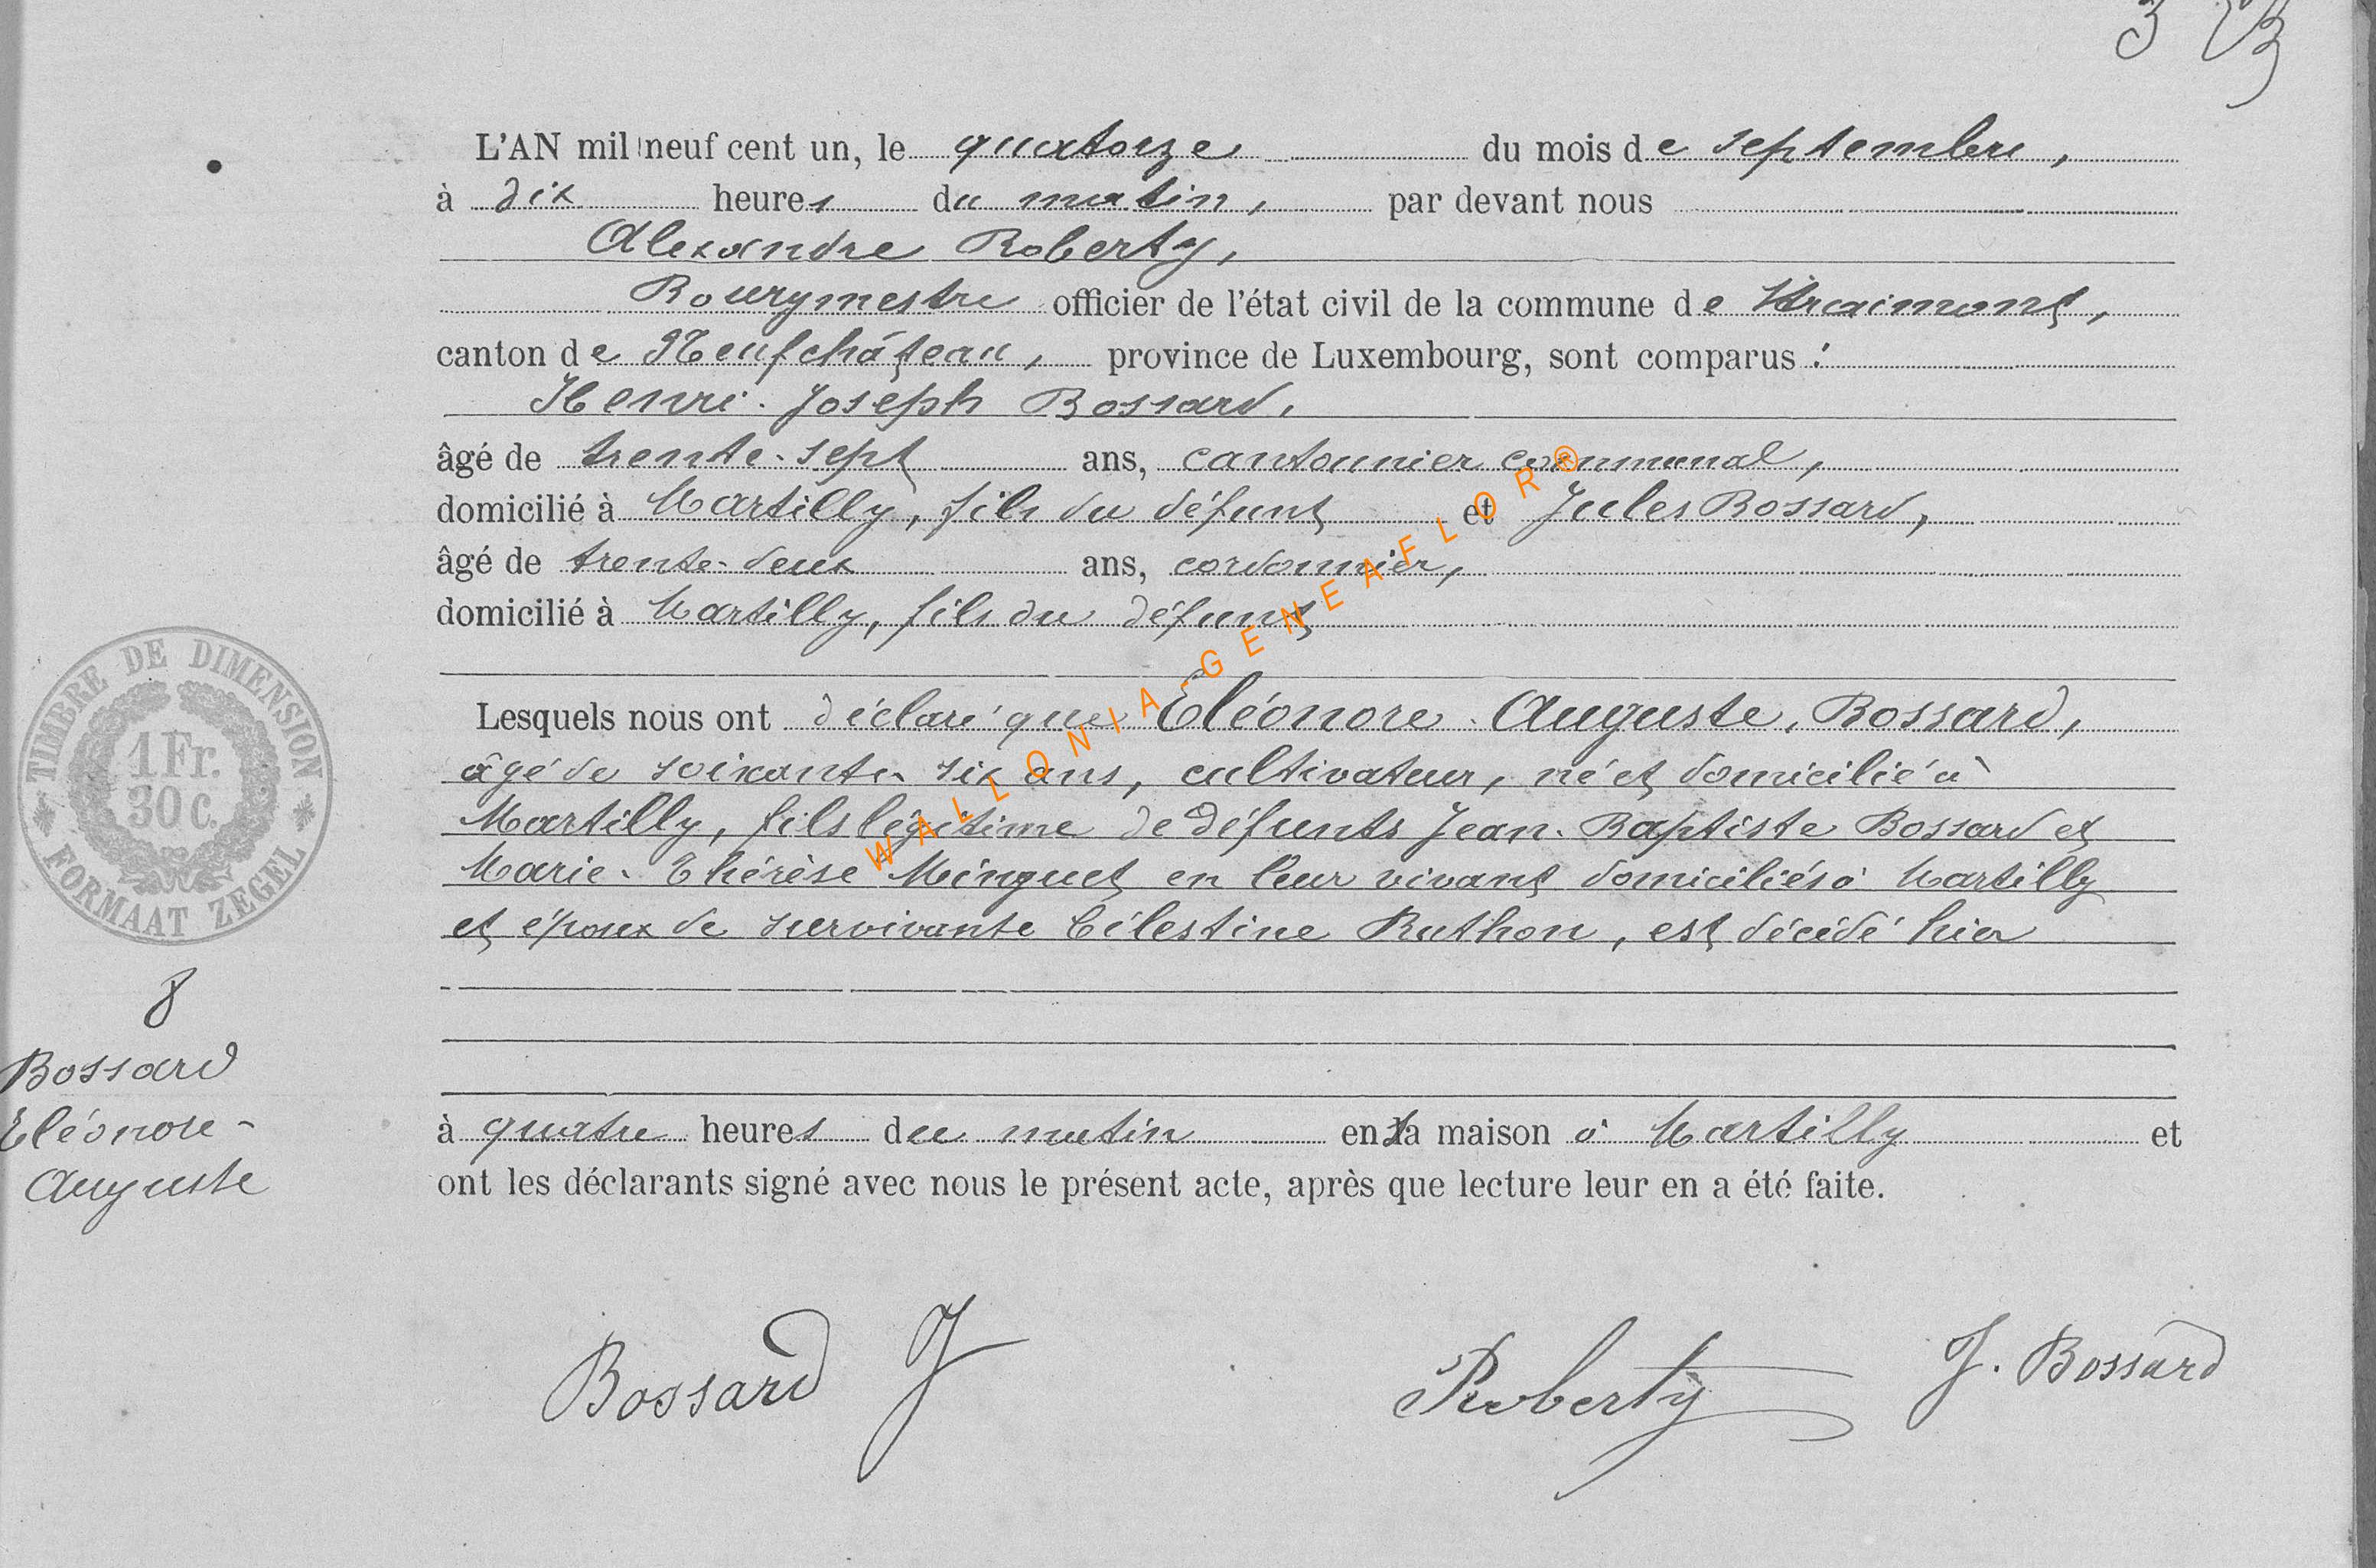 3
L'AN mil neuf cent un, le quatorze du mois de septembre,
à dix heures du matin, par devant nous
Alexandre Roberty,
Bourgmestre officier de l'état civil de la commune de Straimont,
canton de Neufchâteau, province de Luxembourg, sont comparus :
Henri-Joseph Bossard,
âgé de trente-sept ans, cantonnier communal,
domicilié à Martilly, fils du défunt et Jules Bossard,
âgé de trente-deux ans, cordonnier,
domicilié à Martilly, fils du défunt
Lesquels nous ont déclaré que Eléonore-Auguste, Bossard,
âgé de soixante-six ans, cultivateur, né et domicilié à
Martilly, fils légitime de défunts Jean-Baptiste Bossard et
Marie-Thérèse Minguet en leur vivant domiciliés à Martilly
et époux de survivante Célestine Ruthon, est décédé hier
à quatre heures du matin en sa maison à Martilly et
ont les déclarants signé avec nous le présent acte, après que lecture leur en a été faite.
TIMBRE DE DIMENSION
1 Fr.
30 c.
FORMAAT ZEGEL
8
Bossard
Eléonore-
Auguste
Bossard J
Roberty
J. Bossard
WALLONIA-GENEAFLOR®